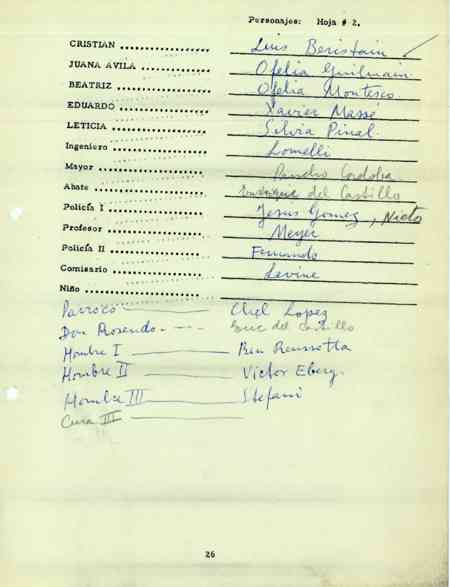 Personajes: Hoja # 2.
CRISTIAN .................. Luis Beristain
JUANA AVILA .............. Ofelia Guilmain
BEATRIZ .................. Ofelia Montesco
EDUARDO .................. Xavier Massé
LETICIA .................. Silvia Pinal
Ingeniero .................. Lomelli
Mayor .................. Pancho Cordoba
Abate .................. Enrique del Castillo
Policía I .................. Jesus Gomez, Nieto
Profesor .................. Meyer
Policía II .................. Fernando
Comisario .................. Levine
Niño ..................
Parroco Chel Lopez
Don Rosendo - - - Eric del Castillo
Hombre I Ben
Hombre II Victor Eberg.
Hombre III Stefani
Cura III
26